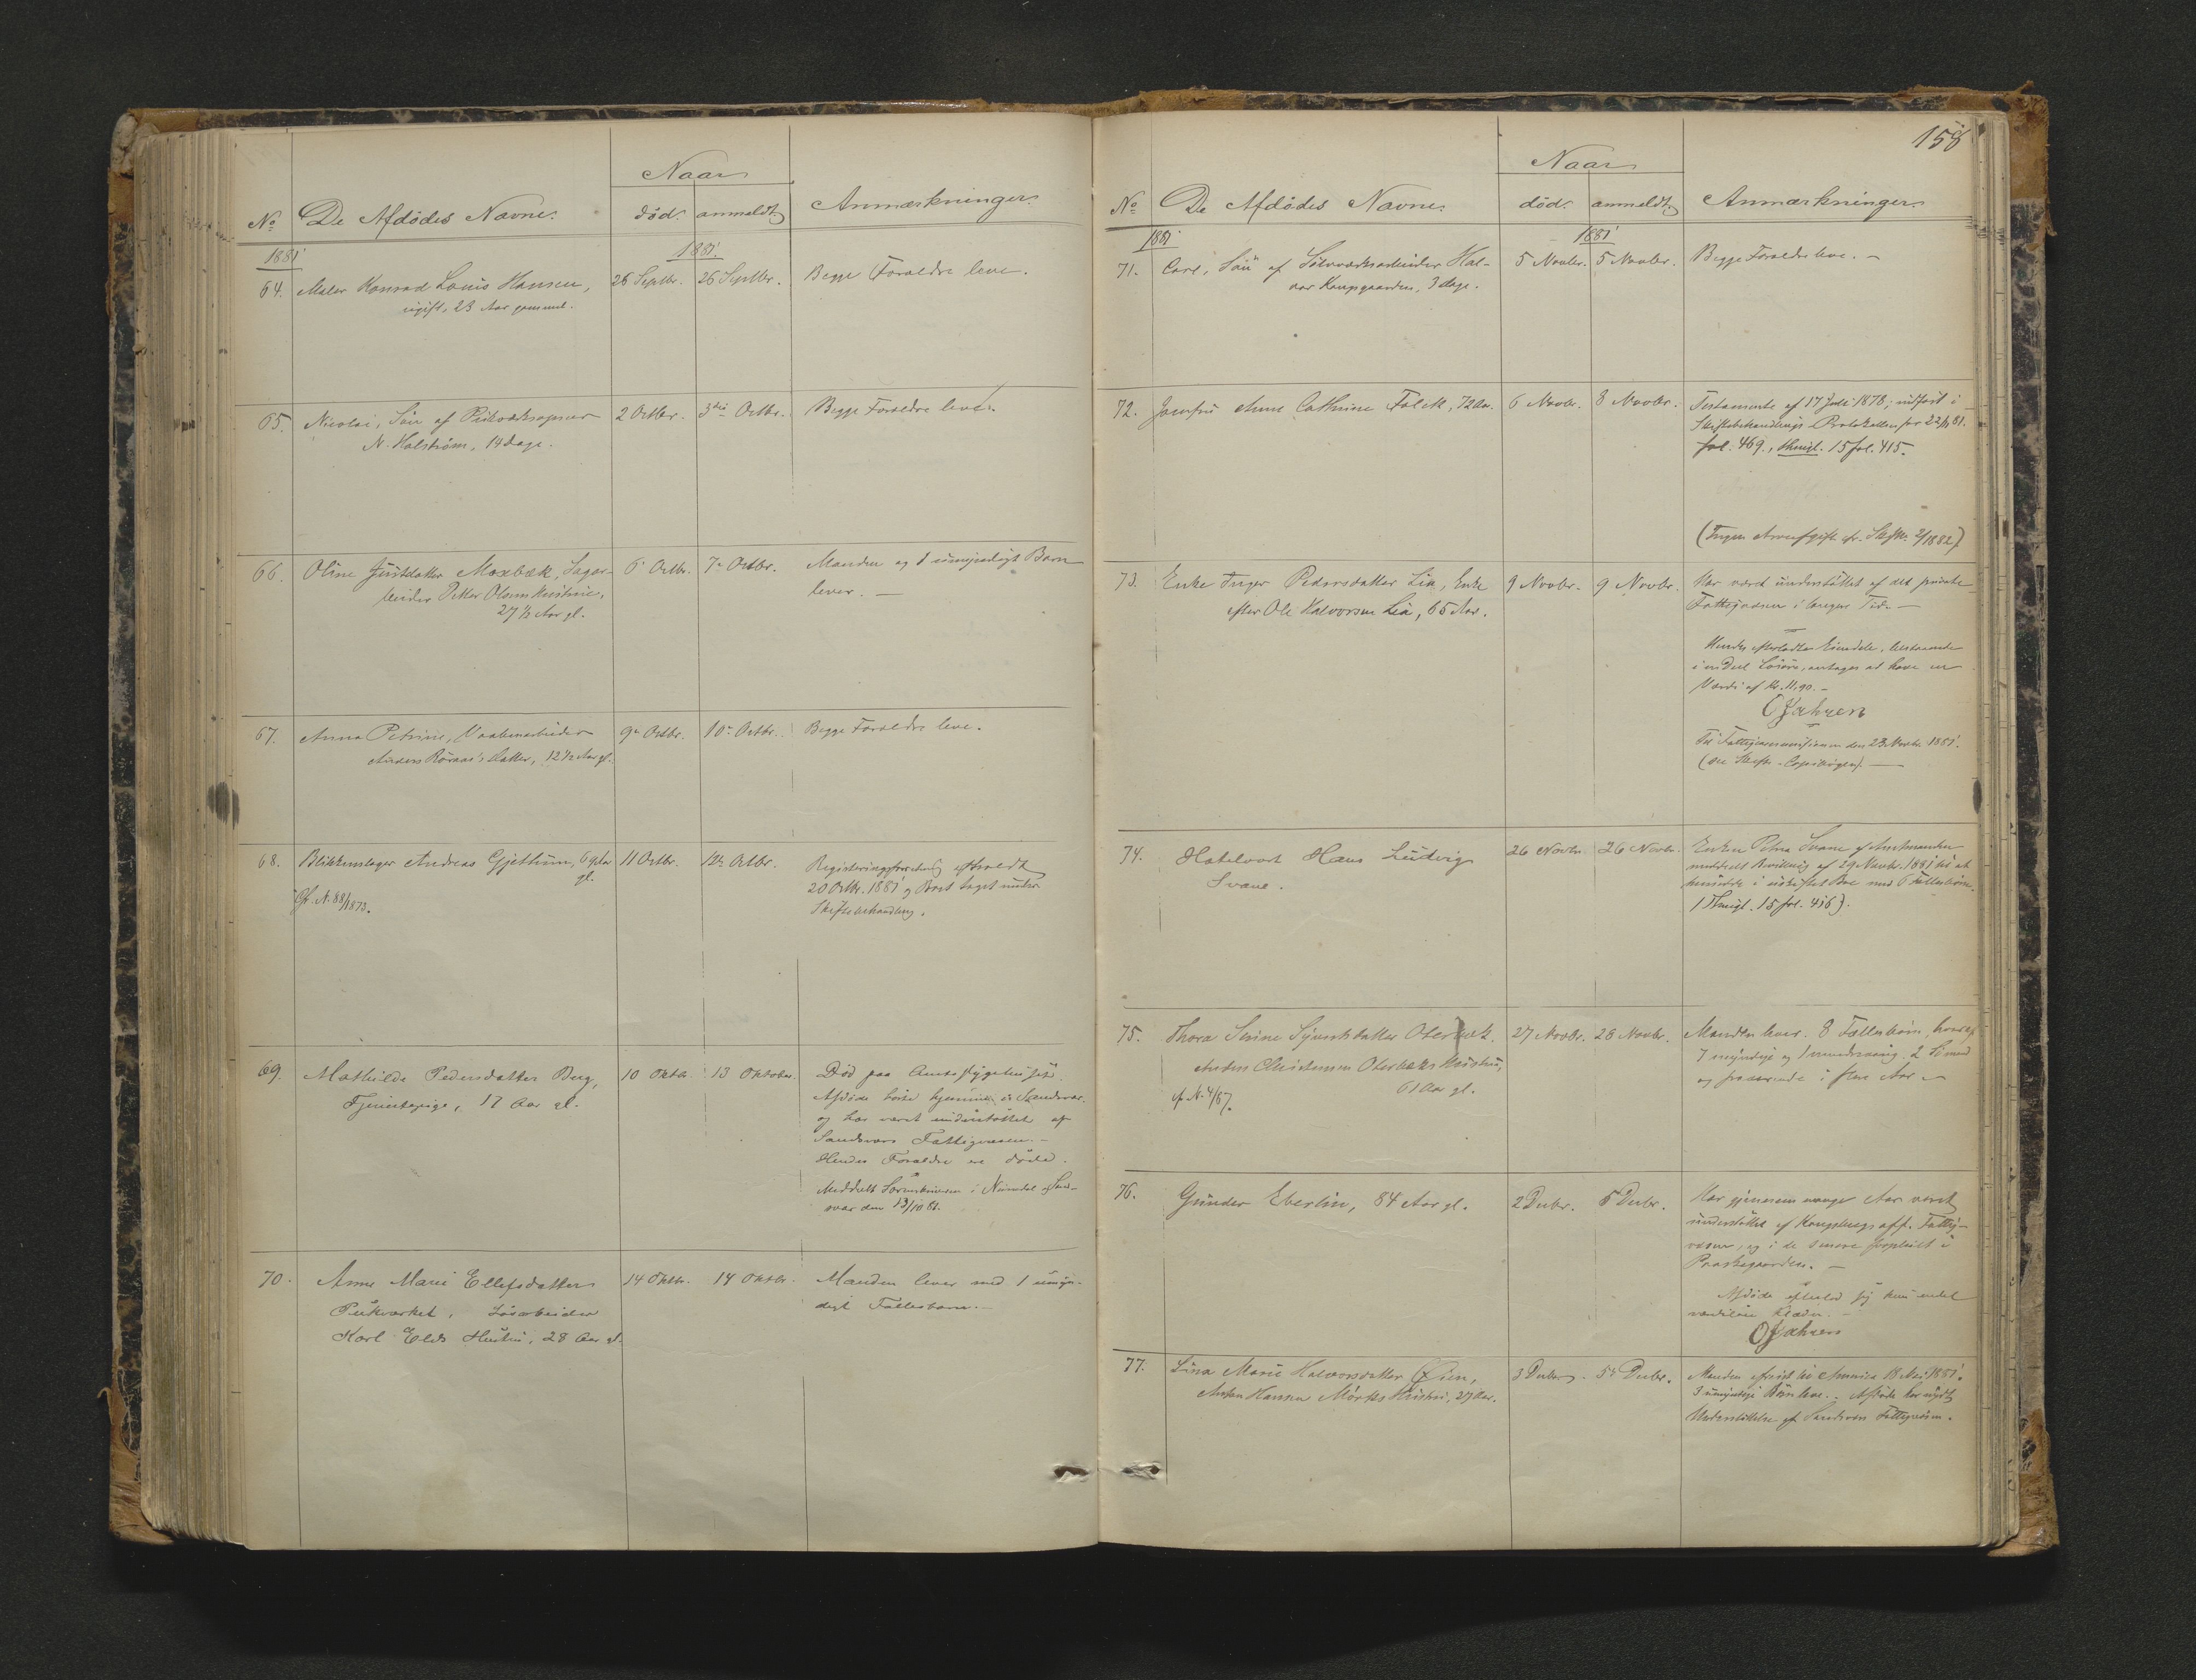 Naar
No De Afdødes Navne. død. anmeldt Anmærkninger.
1881 1881.
64. Maler Konrad Louis Hansen, 26 Septbr. 26 Septbr. Begge Forældre leve.
ugift, 23 Aar gammel.
65. Nicolai, Søn af Pukværksopsner 2 Octbr. 3die Octbr. Begge Forældre leve.
N. Holstrøm, 14 dage.
66. Oline Juulsdatter Moxbæk, Sagar- 6 Octbr. 7de Octbr. Manden og 1 umyndigt Barn
beider Petter Olsens Hustrue, lever. —
27 1/2 Aar gl.
67. Anna Petrine, Vaabenarbeider 9de Octbr. 10de Octbr. Begge Forældre leve.
Anders Röraas's Datter, 12 1/2 Aar gl.
68. Blikkenslager Andreas Gjethuun, 64 Aar 11 Octbr. 12te Octbr. Registreringsforretning afholdt
gl. 20 Octbr. 1881 og Boet taget under
Cfr. N. 88/1873. Skiftebehandling.
69. Mathilde Pedersdatter Berg, 10 Oktbr. 13 Oktober. Død paa Amtssygehuset.
Tjenestepige, 17 Aar gl. Afdøde hørte hjemme i Sandsvær
og har været understøttet af
Sandsværs Fattigvæsen. —
Hendes Forældre ere døde.
Meddelt Sorenskriveren i Numedal og Sand-
svær den 13/10 81.
70. Anne Marie Ellefsdatter 14 Oktbr. 14 Oktbr. Manden lever med 1 umyn-
Pukværket, Løsarbeider digt Fællesbarn. —
Karl Elds Hustru, 28 Aar gl.
158
Naar
No De Afdødes Navne. død. anmeldt Anmærkninger.
1881 1881
71. Carl, Søn af Sølvværksarbeider Hal- 5 Novbr. 5 Novbr. Begge Forældre leve. —
vor Kampgaarden, 3 dage.
72. Jomfru Anne Cathrine Falck, 72 Aar. 6 Novbr. 8 Novbr. Testamente af 17 Juli 1878; indført i
Skiftebehandlings-Protokollen for 22/11 81.
fol. 469., Thingl. 15 fol. 415.
(Ingen Arveafgift cfr. Skftbr. 2/1882)
73. Enke Inger Pedersdatter Lia, Enke 9 Novbr. 9 Novbr. Har været understøttet af det private
efter Ole Halvorsen Lia, 65 Aar. Fattigvæsen i længere Tid. —
Hendes efterladte Eiendele, bestaaende
i en Deel Løsøre, antages at have en
Værdi af Kr. 11,90. —
O Jahren
Til Fattigcommissionen den 23 Novbr 1881.
(See Skifte-Copibogen). —
74. Hotelvært Hans Ludvig 26 Novbr. 26 Novbr. Enken Petra Svane af Amtmanden
Svane. meddelt Bevilling af 29 Novbr. 1881 til at
hensidde i uskiftet Bo med 6 Fællesbørn.
(Thingl. 15 fol. 416).
75. Thora Serine Syvertsdatter Oterbæk, 27 Novbr. 28 Novbr. Manden lever. 8 Fællesbørn, hvoraf
Anders Christensen Oterbæks Hustru, 7 myndige og 1 mindreaarig. 2 Sømænd
61 Aar gl. og fraværende i flere Aar —
cfr N. 4/67.
76. Gunder Eberlin, 84 Aar gl. 2 Decbr. 5 Decbr. Har gjennem mange Aar været
understøttet af Kongsbergs off. Fattig-
væsen, og i de senere forpleiet i
Præstegaarden. —
Afdøde efterlod sig kun endel
værdiløse Klæder. —
O Jahren
77. Lina Marie Halvorsdatter Øien, 3 Decbr. 5te Decbr. Manden afreist til Amerika 18 Mai 1881.
Anton Hansen Mørks Hustru, 27 Aar. 3 umyndige Børn leve. Afdøde har nydt
Understøttelse af Sandsvær Fattigvæsen.